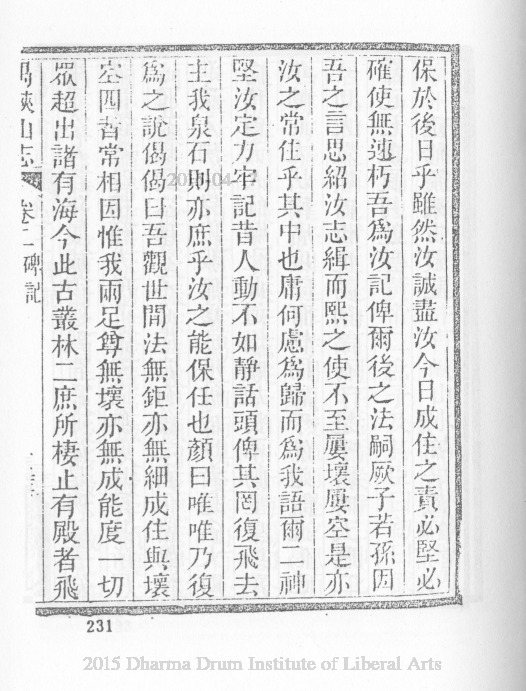 保於後日乎雖然汝誠盡汝今日成住之責必堅必
確使無速朽吾為汝記俾爾後之法嗣厥子若孫因
吾之言思紹汝志緝而熙之使不至屢壞屢空是亦
汝之常住乎其中也庸何慮為歸而為我語爾二神
堅汝定力牢記昔人動不如靜話頭俾其罔復飛去
主我泉石則亦庶乎汝之能保任也顏曰唯唯乃復
為之說偈偈曰吾觀世間法無鉅亦無細成住與壞
空四者常相因惟我兩足尊無壞亦無成能度一切
眾超出諸有海今此古叢林二庶所棲止有殿者飛
峽山志 卷二 碑記
231
2015 Dharma Drum Institute of Liberal Arts